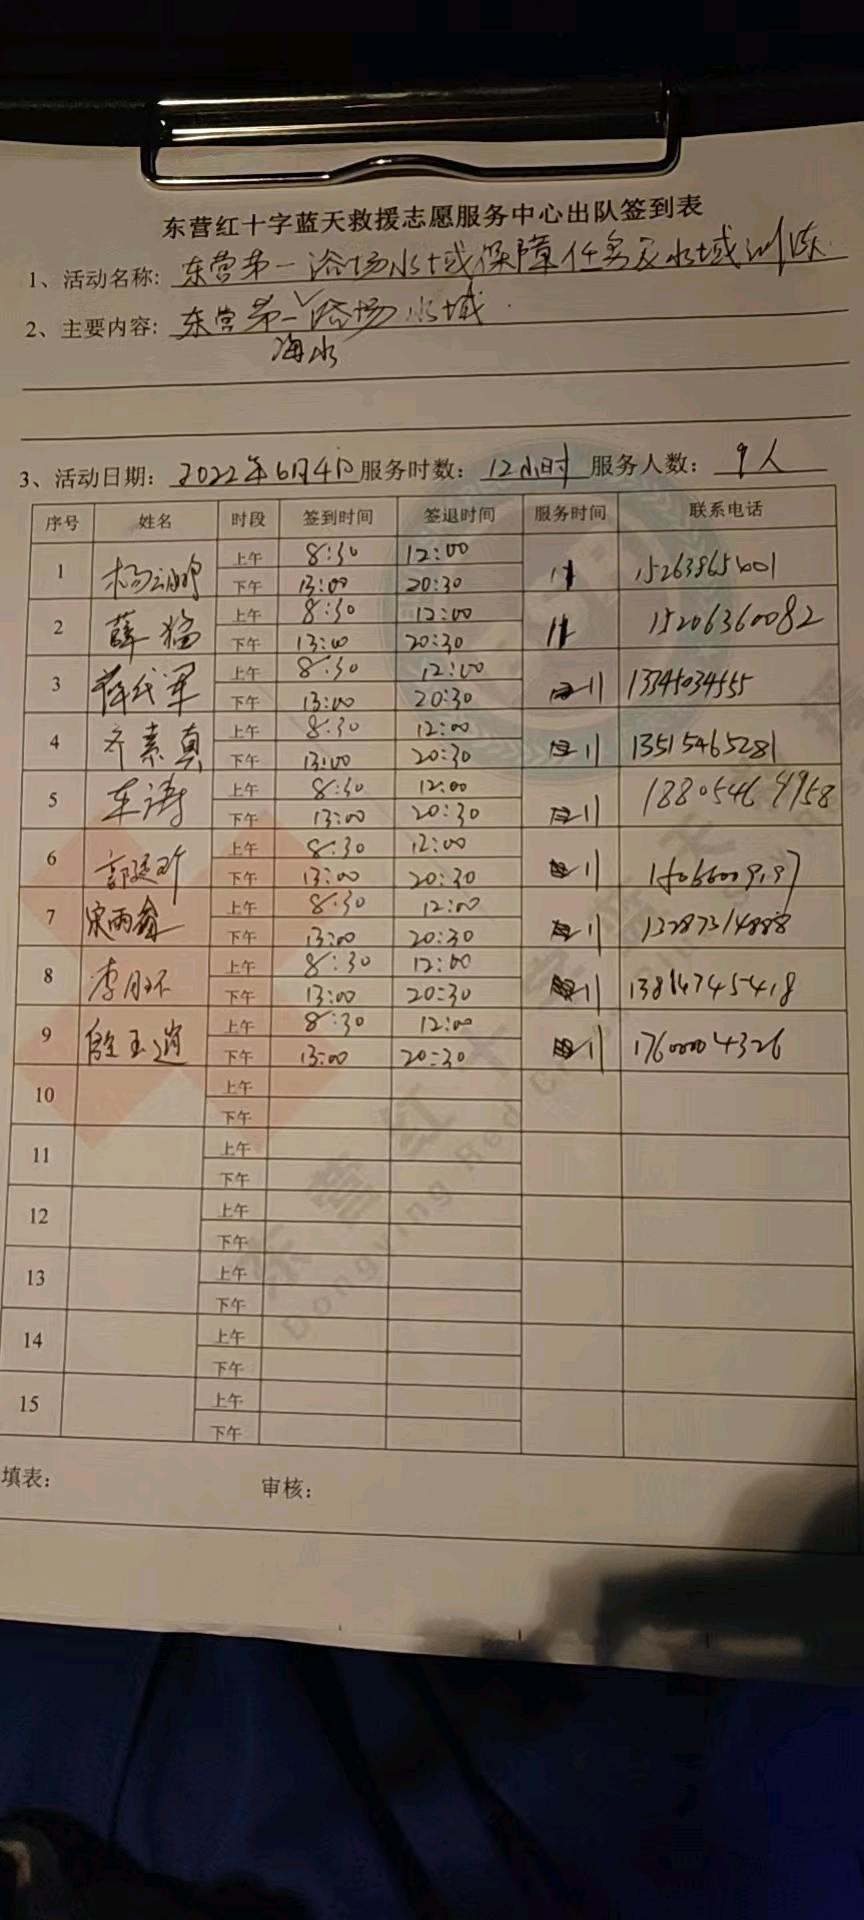 东营红十字蓝天救援志愿服务中心出队签到表
1、活动名称: 东营第一浴场水域保障任务及水域训练.
2、主要内容: 东营第一海水浴场水域.
3、活动日期: 2022年6月4日 服务时数: 12小时 服务人数: 9人
序号 姓名 时段 签到时间 签退时间 服务时间 联系电话
1 上午 8:30 12:00
下午 13:00 20:30 11
2 薛猛 上午 8:30 12:00 11 15206360082
下午 13:00 20:30
3 上午 8:30 12:00
下午 13:00 20:30 11 13345034555
4 齐素真 上午 8:30 12:00
下午 13:00 20:30 11 13515465281
5 车涛 上午 8:30 12:00 18805464958
下午 13:00 20:30 11
6 上午 8:30 12:00
下午 13:00 20:30 11
7 宋雨鑫 上午 8:30 12:00
下午 13:00 20:30 11 13287314888
8 上午 8:30 12:00
下午 13:00 20:30 11
9 上午 8:30 12:00
下午 13:00 20:30 11 17600004326
10 上午
下午
11 上午
下午
12 上午
下午
13 上午
下午
14 上午
下午
15 上午
下午
填表: 审核:
东营红十字蓝天救援
Dongying Red